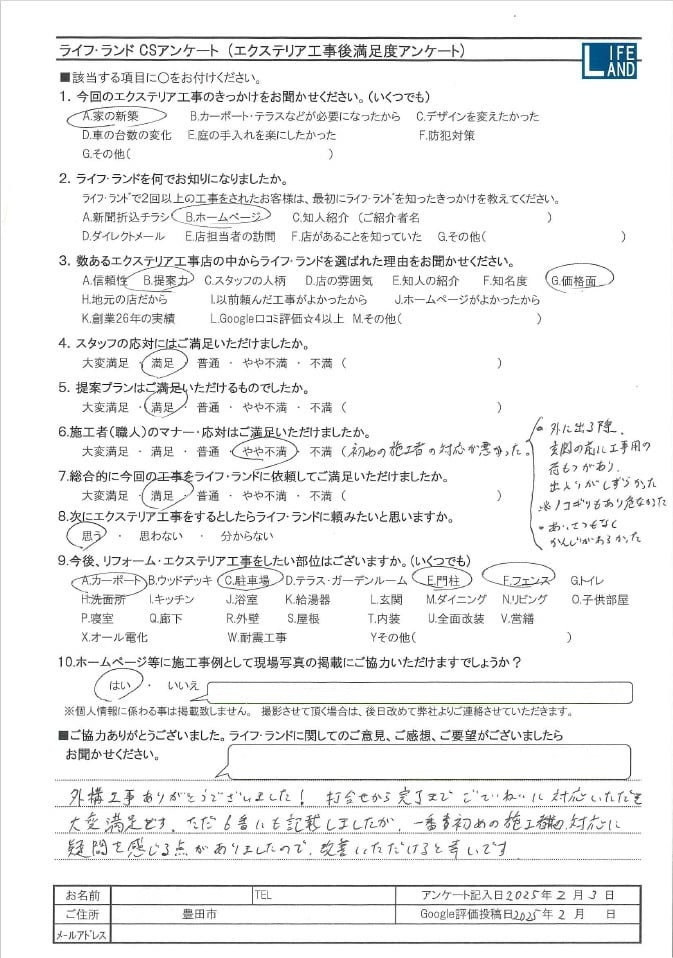 ライフ・ランド CSアンケート （エクステリア工事後満足度アンケート）
LIFE LAND
■該当する項目に〇をお付けください。
1. 今回のエクステリア工事のきっかけをお聞かせください。（いくつでも）
A.家の新築 B.カーポート・テラスなどが必要になったから C.デザインを変えたかった
D.車の台数の変化 E.庭の手入れを楽にしたかった F.防犯対策
G.その他（ ）
2. ライフ・ランドを何でお知りになりましたか。
ライフ・ランドで2回以上の工事をされたお客様は、最初にライフ・ランドを知ったきっかけを教えてください。
A.新聞折込チラシ B.ホームページ C.知人紹介 （ご紹介者名 ）
D.ダイレクトメール E.店担当者の訪問 F.店があることを知っていた G.その他（ ）
3. 数あるエクステリア工事店の中からライフ・ランドを選ばれた理由をお聞かせください。
A.信頼性 B.提案力 C.スタッフの人柄 D.店の雰囲気 E.知人の紹介 F.知名度 G.価格面
H.地元の店だから I.以前頼んだ工事がよかったから J.ホームページがよかったから
K.創業26年の実績 L.Google口コミ評価☆4以上 M.その他（ ）
4. スタッフの応対にはご満足いただけましたか。
大変満足 ・ 満足 ・ 普通 ・ やや不満 ・ 不満 （ ）
5. 提案プランはご満足いただけるものでしたか。
大変満足 ・ 満足 ・ 普通 ・ やや不満 ・ 不満 （ ）
6.施工者（職人）のマナー・応対はご満足いただけましたか。
大変満足 ・ 満足 ・ 普通 ・ やや不満 ・ 不満 （初めの施工者の対応が悪かった。）
・外に出る際、
玄関の前に工事用の
荷もつがあり、
出入りがしずらかった
※ノコギリもあり危なかった
・あいさつもなく
かんじがわるかった
7.総合的に今回の工事をライフ・ランドに依頼してご満足いただけましたか。
大変満足 ・ 満足 ・ 普通 ・ やや不満 ・ 不満 （
8.次にエクステリア工事をするとしたらライフ・ランドに頼みたいと思いますか。
思う ・ 思わない ・ 分からない
9.今後、リフォーム・エクステリア工事をしたい部位はございますか。（いくつでも）
A.カーポート B.ウッドデッキ C.駐車場 D.テラス・ガーデンルーム E.門柱 F.フェンス G.トイレ
H.洗面所 I.キッチン J.浴室 K.給湯器 L.玄関 M.ダイニング N.リビング O.子供部屋
P.寝室 Q.廊下 R.外壁 S.屋根 T.内装 U.全面改装 V.営繕
X.オール電化 W.耐震工事 Yその他（ ）
10.ホームページ等に施工事例として現場写真の掲載にご協力いただけますでしょうか？
はい ・ いいえ
※個人情報に係わる事は掲載致しません。 撮影させて頂く場合は、後日改めて弊社よりご連絡させていただきます。
■ご協力ありがとうございました。ライフ・ランドに関してのご意見、ご感想、ご要望がございましたら
お聞かせください。
外構工事ありがとうございました！ 打合せから完了まで ごていねいに対応いただき
大変満足です。ただ6番にも記載しましたが、一番初めの施工の対応に
疑問を感じる点がありましたので、改善いただけると幸いです。
お名前 TEL アンケート記入日2025年2月3日
ご住所 豊田市 Google評価投稿日2025年2月 日
メールアドレス